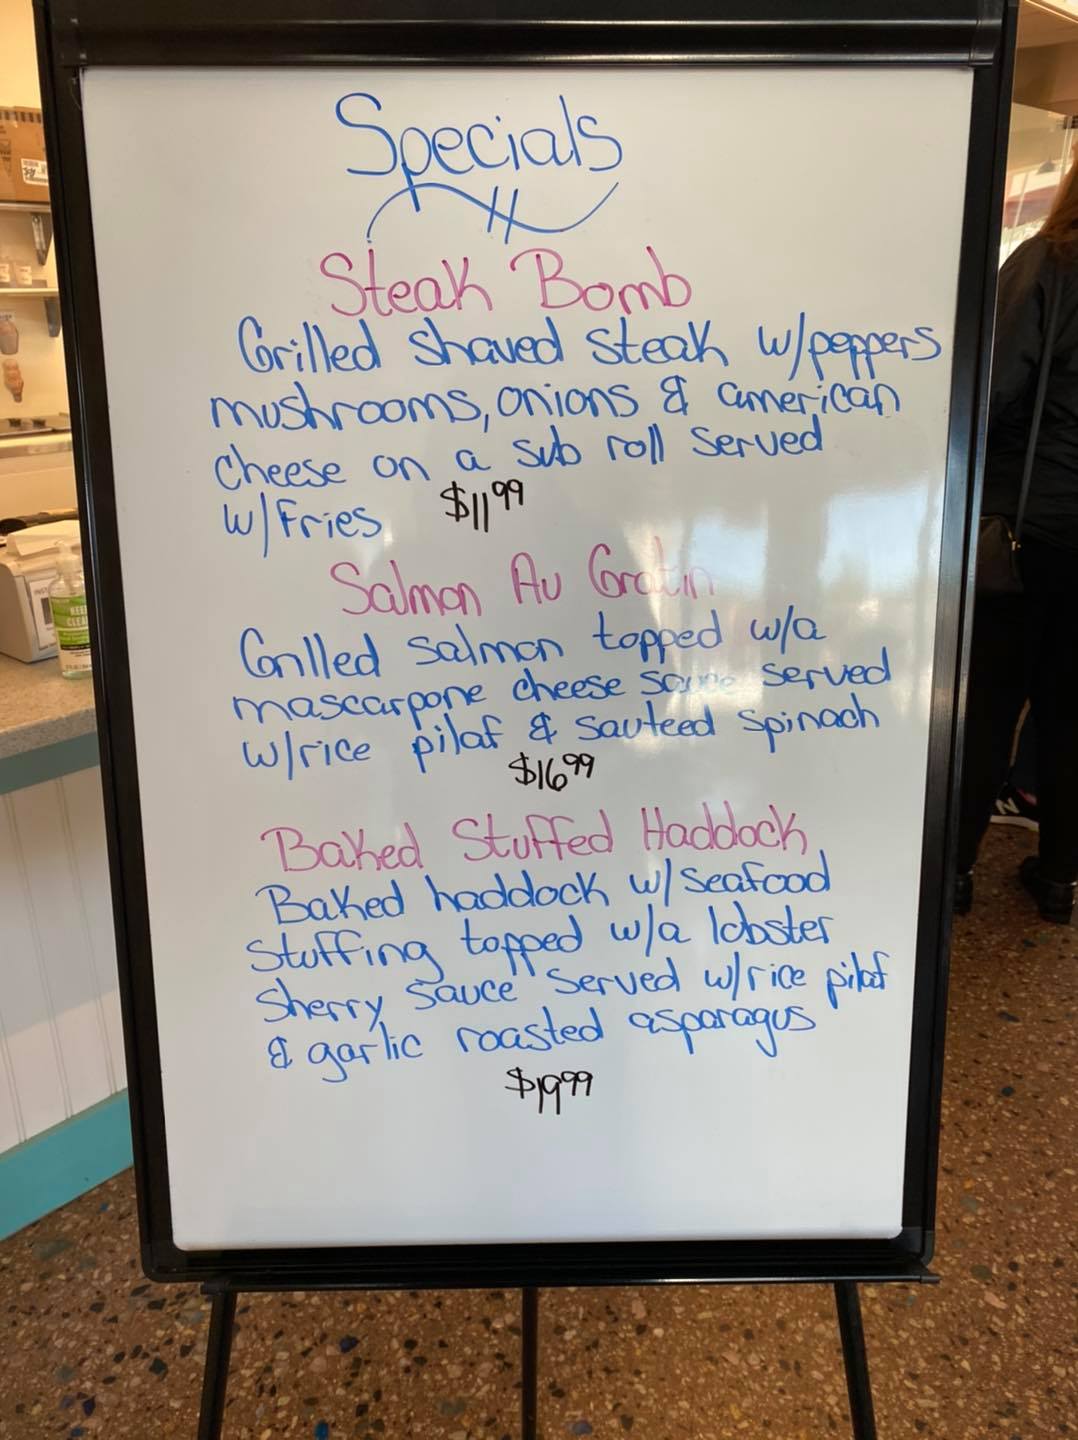 Specials
Steak Bomb
Grilled shaved steak w/peppers
mushrooms, onions & american
cheese on a sub roll served
w/Fries $11.99
Salmon Au Gratin
Grilled salmon topped w/a
mascarpone cheese sauce served
w/rice pilaf & sauteed spinach
$16.99
Baked Stuffed Haddock
Baked haddock w/seafood
stuffing topped w/a lobster
sherry sauce served w/rice pilaf
& garlic roasted asparagus
$19.99